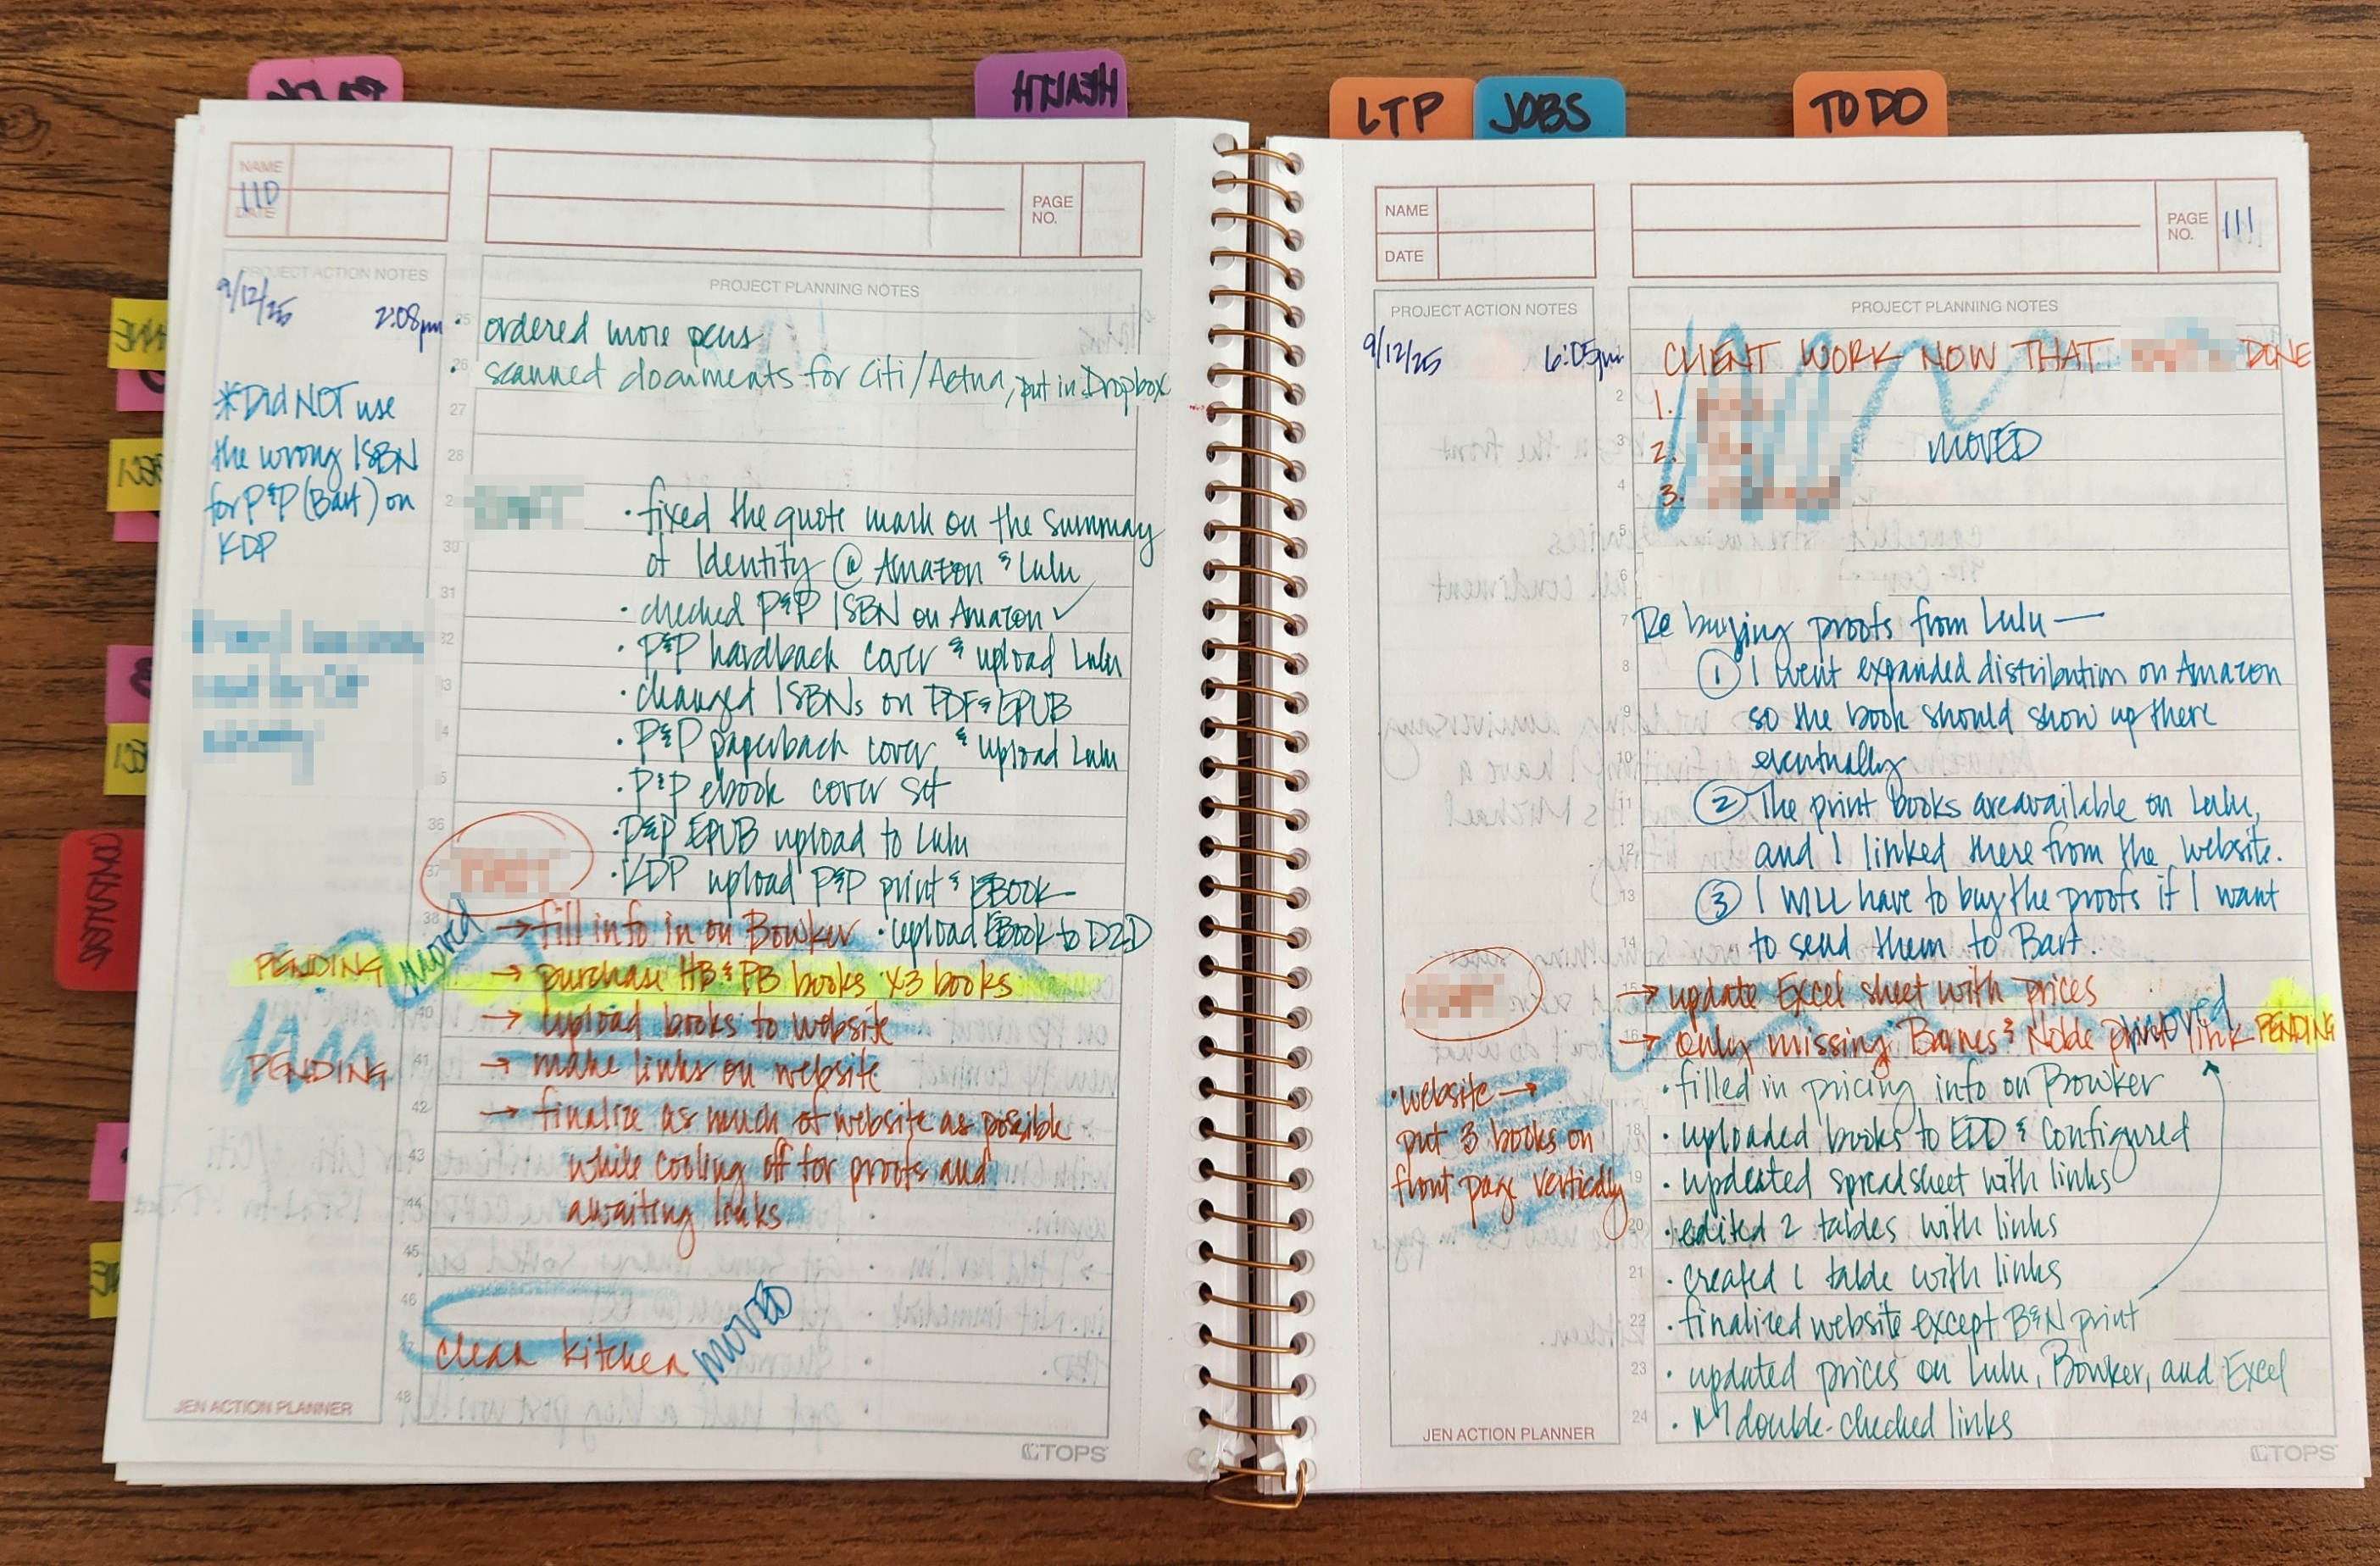 HEALTH
LTP
JOBS
TO DO
NAME
110
DATE
PAGE
NO.
PROJECT ACTION NOTES
PROJECT PLANNING NOTES
9/12/25 2:08pm
• ordered more pens
• scanned documents for Citi/Aetna, put in Dropbox
*Did NOT use
the wrong ISBN
for P&P (Bart) on
KDP
• fixed the quote mark on the summary
of Identity @ Amazon & Lulu
• checked P&P ISBN on Amazon ✓
• P&P hardback cover & upload Lulu
• changed ISBNs on PDF & EPUB
• P&P paperback cover & upload Lulu
• P&P ebook cover set
• P&P EPUB upload to Lulu
• KDP upload P&P print & EBOOK
→ fill info in on Bowker • upload EBook to D2D
PENDING moved → purchase HB & PB books x3 books
→ upload books to website
PENDING → make links on website
→ finalize as much of website as possible
while cooling off for proofs and
awaiting links
clean kitchen MOVED
25
26
27
28
30
31
32
36
37
38
40
41
42
43
44
45
46
47
48
JEN ACTION PLANNER
TOPS
NAME
DATE
PAGE
NO.
111
PROJECT ACTION NOTES
PROJECT PLANNING NOTES
9/12/25 6:05pm
CLIENT WORK NOW THAT DONE
1.
2. MOVED
3.
Re buying proofs from Lulu —
① I went expanded distribution on Amazon
so the book should show up there
eventually
② The print books are available on Lulu,
and I linked there from the website.
③ I WILL have to buy the proofs if I want
to send them to Bart.
→ update Excel sheet with prices
→ only missing Barnes & Noble print link moved PENDING
• website →
put 3 books on
front page vertically
• filled in pricing info on Bowker
• uploaded books to EDD & configured
• updated spreadsheet with links
• edited 2 tables with links
• created 1 table with links
• finalized website except B&N print
• updated prices on Lulu, Bowker, and Excel
• double-checked links
2
3
4
5
6
7
8
9
10
11
12
13
14
15
16
18
19
20
21
22
23
24
JEN ACTION PLANNER
TOPS